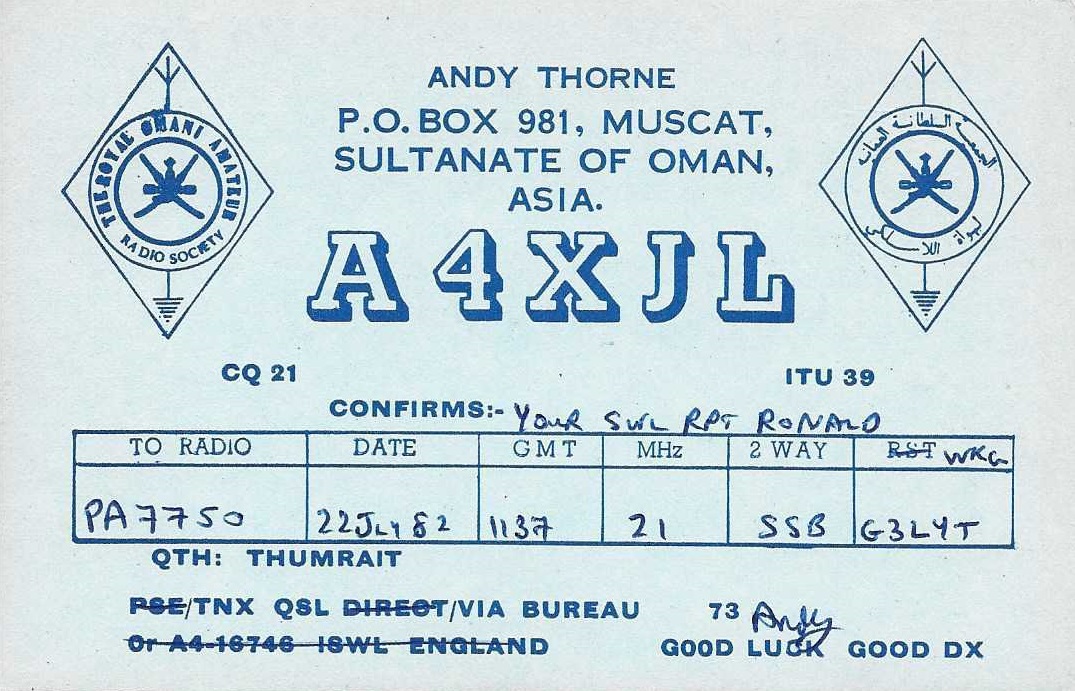 ANDY THORNE
P.O. BOX 981, MUSCAT,
SULTANATE OF OMAN,
ASIA.
THE ROYAL OMANI AMATEUR
RADIO SOCIETY
الجمعية السلطانية العمانية
لهواة اللاسلكي
A4XJL
CQ 21 ITU 39
CONFIRMS:- YOUR SWL RPT RONALD
TO RADIO DATE GMT MHz 2 WAY RST WKG
PA7750 22JLY82 1137 21 SSB G3LYT
QTH: THUMRAIT
PSE/TNX QSL DIRECT/VIA BUREAU 73 Andy
Or A4-16746 ISWL ENGLAND GOOD LUCK GOOD DX